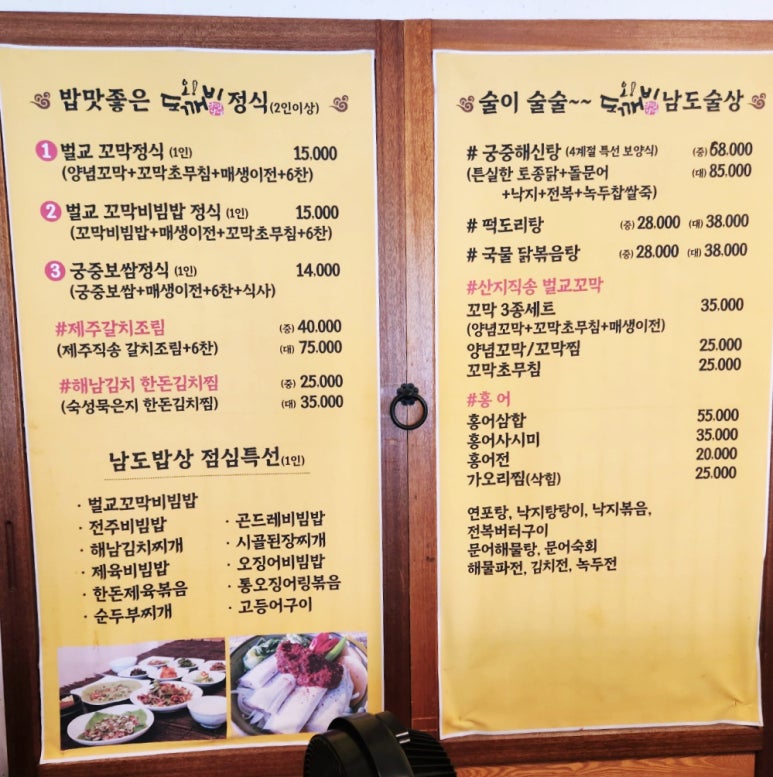 밥맛좋은 도깨비 정식(2인이상)
1 벌교 꼬막정식 (1인) 15.000
(양념꼬막+꼬막초무침+매생이전+6찬)
2 벌교 꼬막비빔밥 정식 (1인) 15.000
(꼬막비빔밥+매생이전+꼬막초무침+6찬)
3 궁중보쌈정식 (1인) 14.000
(궁중보쌈+매생이전+6찬+식사)
#제주갈치조림 (중) 40.000
(제주직송 갈치조림+6찬) (대) 75.000
#해남김치 한돈김치찜 (중) 25.000
(숙성묵은지 한돈김치찜) (대) 35.000
남도밥상 점심특선(1인)
· 벌교꼬막비빔밥
· 전주비빔밥
· 해남김치찌개
· 제육비빔밥
· 한돈제육볶음
· 순두부찌개
· 곤드레비빔밥
· 시골된장찌개
· 오징어비빔밥
· 통오징어링볶음
· 고등어구이
술이 술술~~ 도깨비 남도술상
# 궁중해신탕 (4계절 특선 보양식) (중) 68.000
(튼실한 토종닭+돌문어 (대) 85.000
+낙지+전복+녹두찹쌀죽)
# 떡도리탕 (중) 28.000 (대) 38.000
# 국물 닭볶음탕 (중) 28.000 (대) 38.000
#산지직송 벌교꼬막
꼬막 3종세트 35.000
(양념꼬막+꼬막초무침+매생이전)
양념꼬막/꼬막찜 25.000
꼬막초무침 25.000
#홍 어
홍어삼합 55.000
홍어사시미 35.000
홍어전 20.000
가오리찜(삭힘) 25.000
연포탕, 낙지탕탕이, 낙지볶음,
전복버터구이
문어해물탕, 문어숙회
해물파전, 김치전, 녹두전